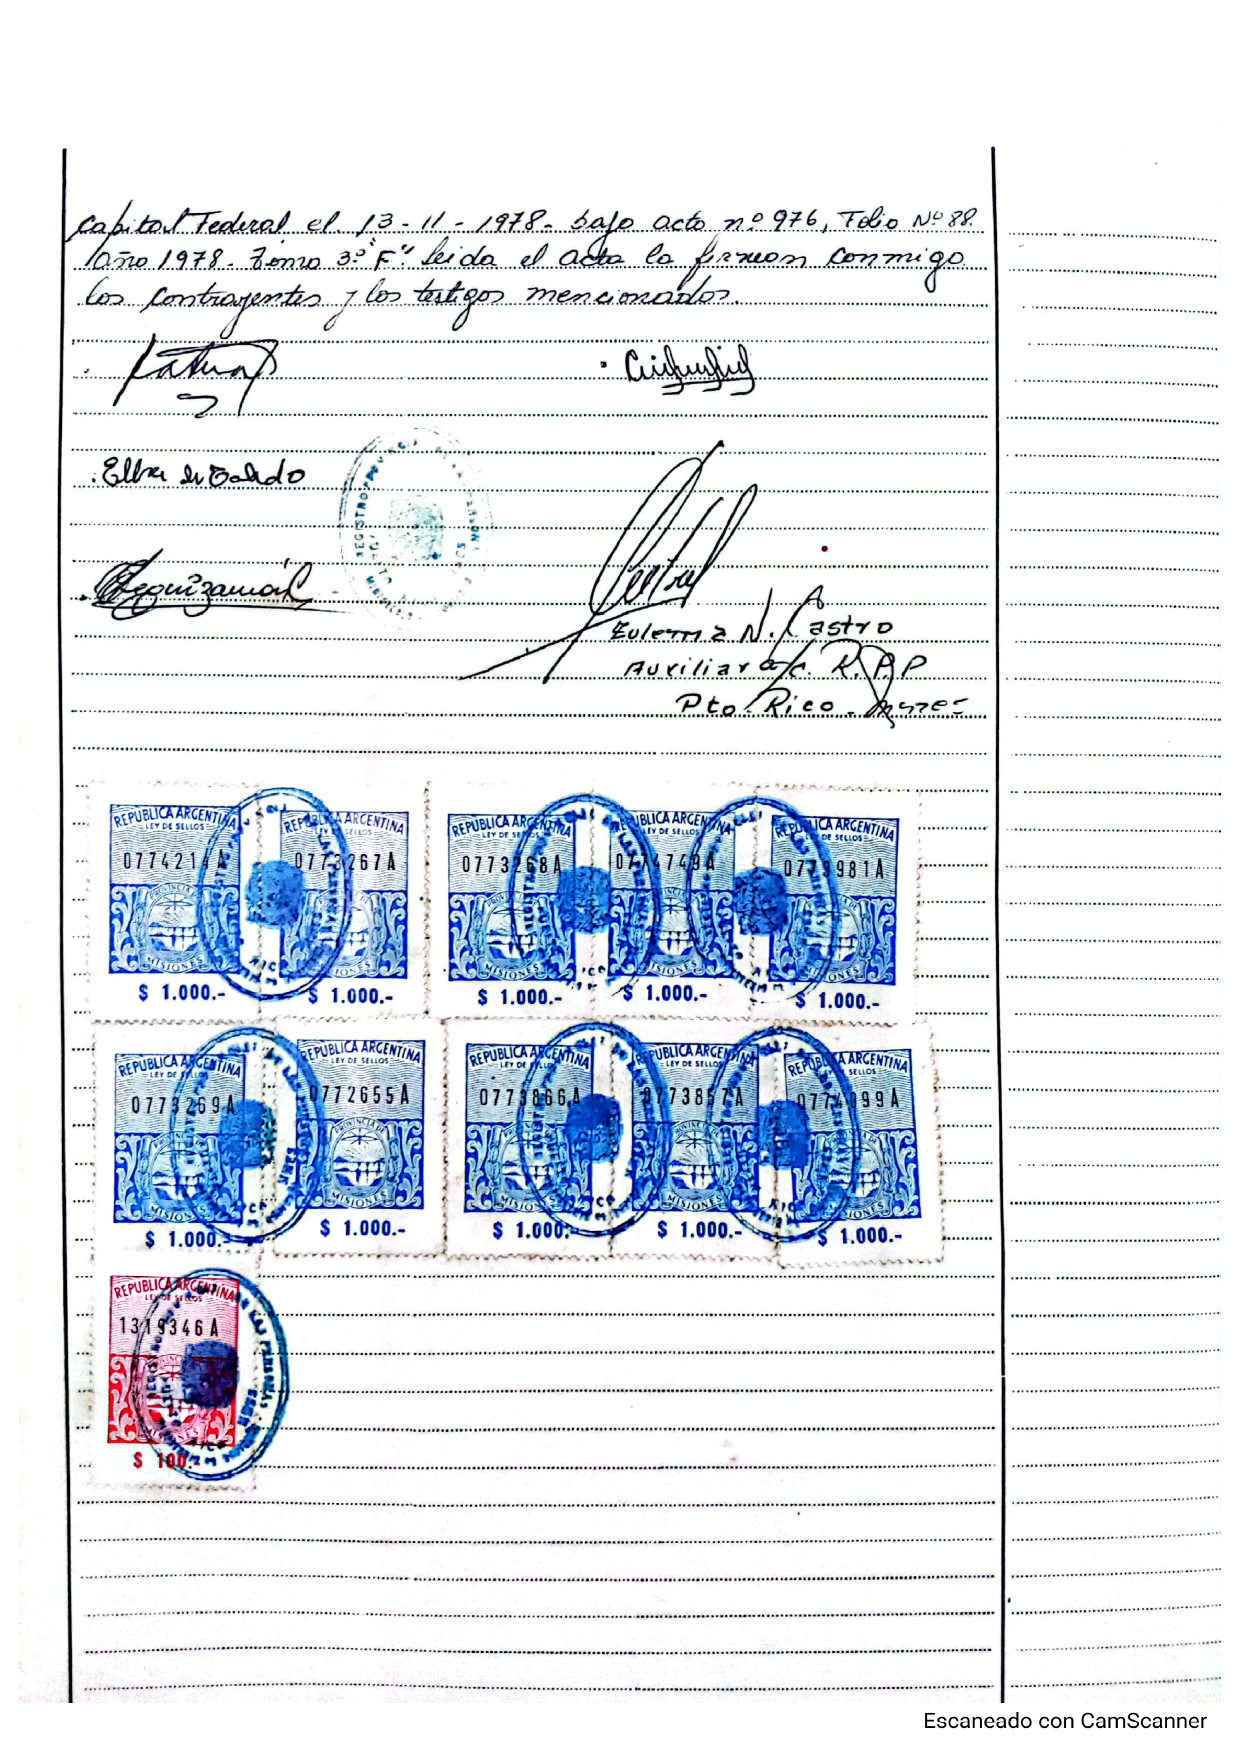 Capital Federal el 13-11-1978- bajo acta nº 976, Folio Nº 88.
Año 1978- Tomo 3º "F". Leida el acta la firman conmigo
los contrayentes y los testigos mencionados.
Elba de Galido
Leguizamón
Eulerma N. Castro
Auxiliar a/c. R.P.P
Pto. Rico - Mnes
REPUBLICA ARGENTINA REPUBLICA ARGENTINA REPUBLICA ARGENTINA REPUBLICA ARGENTINA REPUBLICA ARGENTINA
LEY DE SELLOS LEY DE SELLOS LEY DE SELLOS LEY DE SELLOS LEY DE SELLOS
0773267A 0773268A 0779981A
MISIONES MISIONES MISIONES MISIONES MISIONES
$ 1.000.- $ 1.000.- $ 1.000.- $ 1.000.- $ 1.000.-
REPUBLICA ARGENTINA REPUBLICA ARGENTINA REPUBLICA ARGENTINA REPUBLICA ARGENTINA REPUBLICA ARGENTINA
LEY DE SELLOS LEY DE SELLOS LEY DE SELLOS LEY DE SELLOS LEY DE SELLOS
0773269A 0772655A 0773866A 0773867A
MISIONES MISIONES MISIONES MISIONES MISIONES
$ 1.000.- $ 1.000.- $ 1.000.- $ 1.000.- $ 1.000.-
REPUBLICA ARGENTINA
LEY DE SELLOS
1319346A
$ 100.-
Escaneado con CamScanner